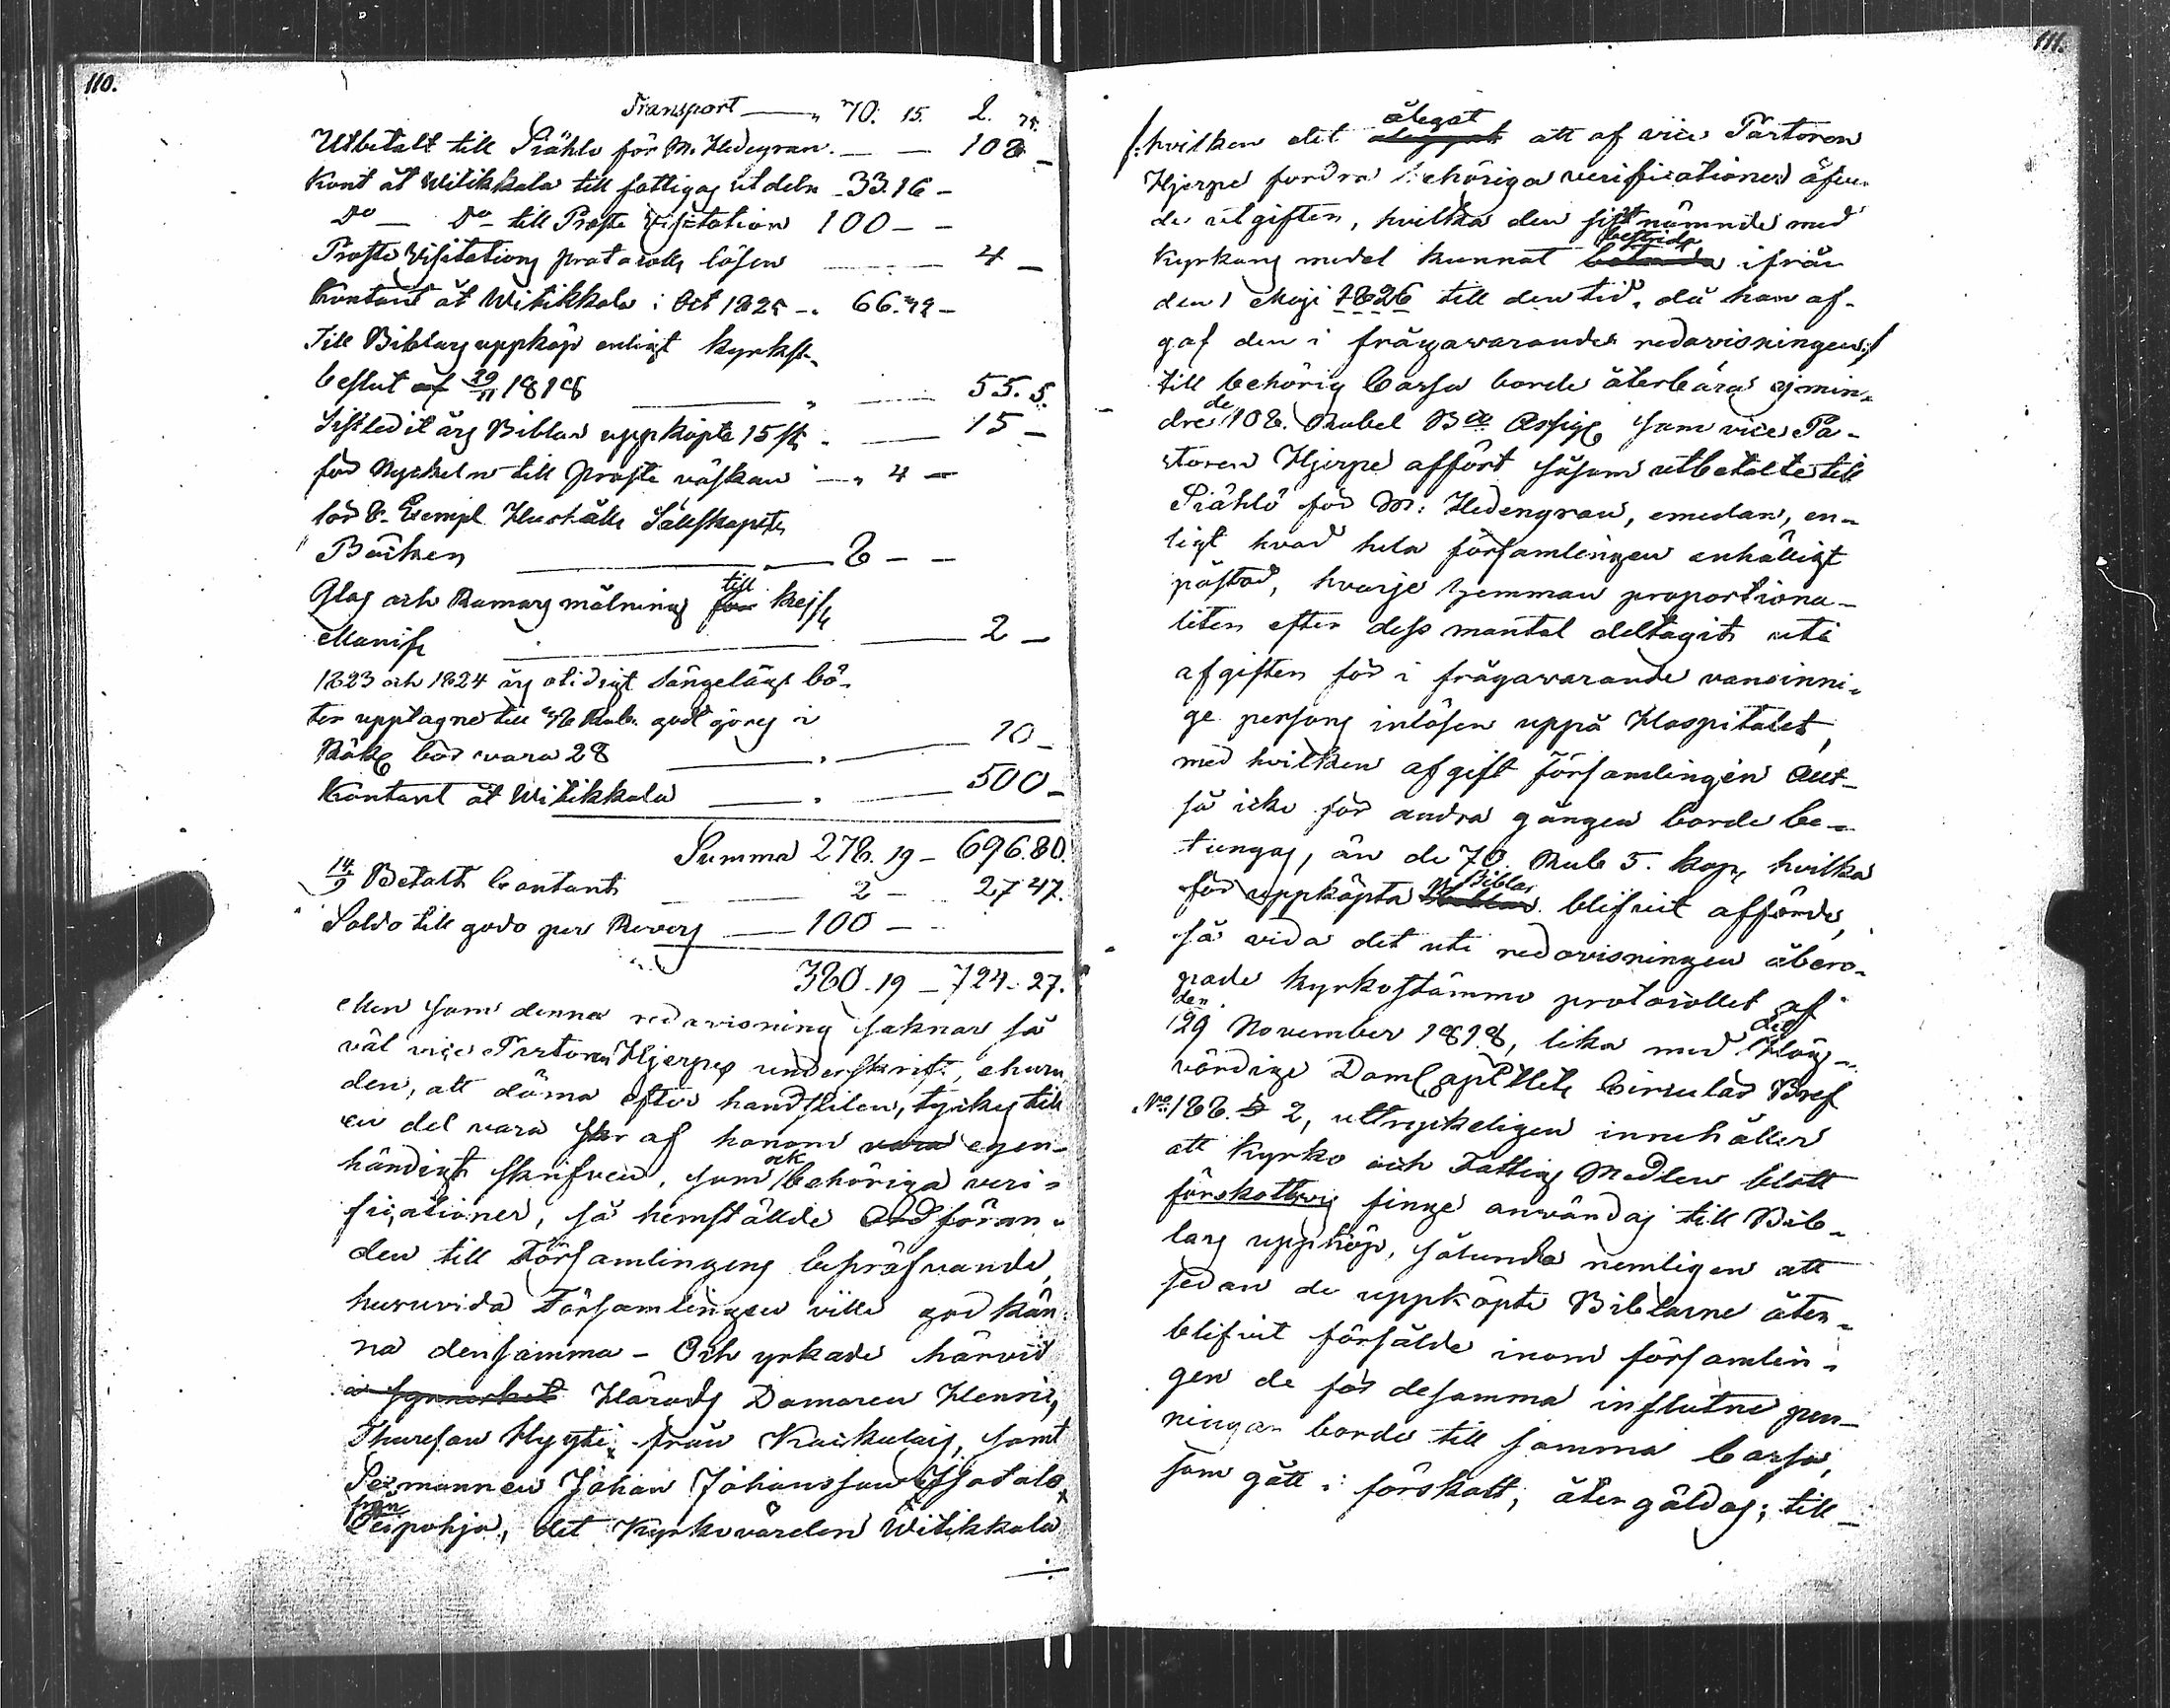 110.
Transport — „ 70. 15. 2. 75.
Utbetalt till Siählö för M. Hedengran. — — 108 —
Kont åt Witikkala till fattigas utdeln 33.16 —
Do — Do till Prosts Visitation 100 — —
Prosts Visitations protocolls lösen — 4 —
Kontant åt Witikkala i Oct 1825 — 66.32 —
Till Biblars uppköp enligt kyrkst.
beslut af 29/11 1818 — „ — 55. 5.
Sistledit års Biblar uppköpte 15 st. — 15 —
för Nyckeln till Prosts väskan — „ 4 —
för 8. Exempl. Hushålls Sällskapets
Böcker — 8 — —
Glas och Ramars målning för till Kejs.
Manif. — 2 —
1823 och 1824 års olidigt Sängelägs bö-
ter upptagne till 48 Rub. godtgöres i
Räkg bör vara 28 — . — 10 —
Kontant åt Witikkala — . — 500 —
Summa 278. 19 — 696.80.
14/9 Betalt Contant — 2 — 27 47.
Saldo till godo per Revers — 100 —
380. 19 — 724. 27.
Men som denna redovisning saknar så
väl vice Pastoren Hjerpes underskrift, ehuru
den, att döma efter handstilen, tyckes till
en del vara skr af honom vara egen-
händigt skrifven, som ock behöriga veri-
ficationer, så hemställde Ordföran-
den till Församlingens bepröfvande,
huruvida Församlingen ville godkän-
na densamma – Och yrkade härvid
i synnerhet Härads Domaren Henric
Thuresson Hyyti från Kaikulais, samt
Sexmannen Johan Johansson Isotalo
från Seipohja, det Kyrkovärden Witikkala
111.
/: hvilken det aleggat ålegat att af vice Pastoren
Hjerpe fordra behöriga verificationer öfver
de utgifter, hvilka den sistnämnde med
Kyrkans medel kunnat betrida bestrida ifrån
den 1 Maji 1826 till den tid, då han af-
gaf den i frågavarande redovisningen :/
till behörig Cassa borde återbära ej min-
dre de 108. Rubel Bco Assign som vice Pa-
storen Hjerpe affört såsom utbetalte till
Siählö för M: Hedengran, emedan, en-
ligt hvad hela församlingen enhälligt
påstod, hvarje hemman proportiona-
liter efter dess mantal deltagit uti
afgiften för i frågavarande vansinni-
ge persons inlösen uppå Hospitalet,
med hvilken afgift Församlingen Allt-
så icke för andra gången borde be-
tungas, än de 70. Rub 5. kop, hvilka
för uppköpta Biblar Biblar blifvit affördes,
så vida det uti redovisningen åbero-
pade Kyrkostämmo protocollet af
den 29 November 1818, lika med det Hög-
vördige DomCapitlets Circulär Bref
No 188. § 2, uttryckeligen innehåller
att Kyrko och Fattigs Medlen blott
förskottsvis finge användas till Bib-
lars uppköp, sålunda nemligen att
sedan de uppköpte Biblarne åter-
blifvit försålde inom församlin-
gen de för desamma influtne pen-
ningar borde till samma Cassa,
som gått i förskott, återgäldas; till-